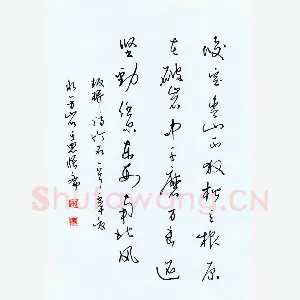 咬定青山不放松立根原
在破岩中千磨万击还
坚劲任尔东西南北风
板桥诗竹石
Shufawang.CN